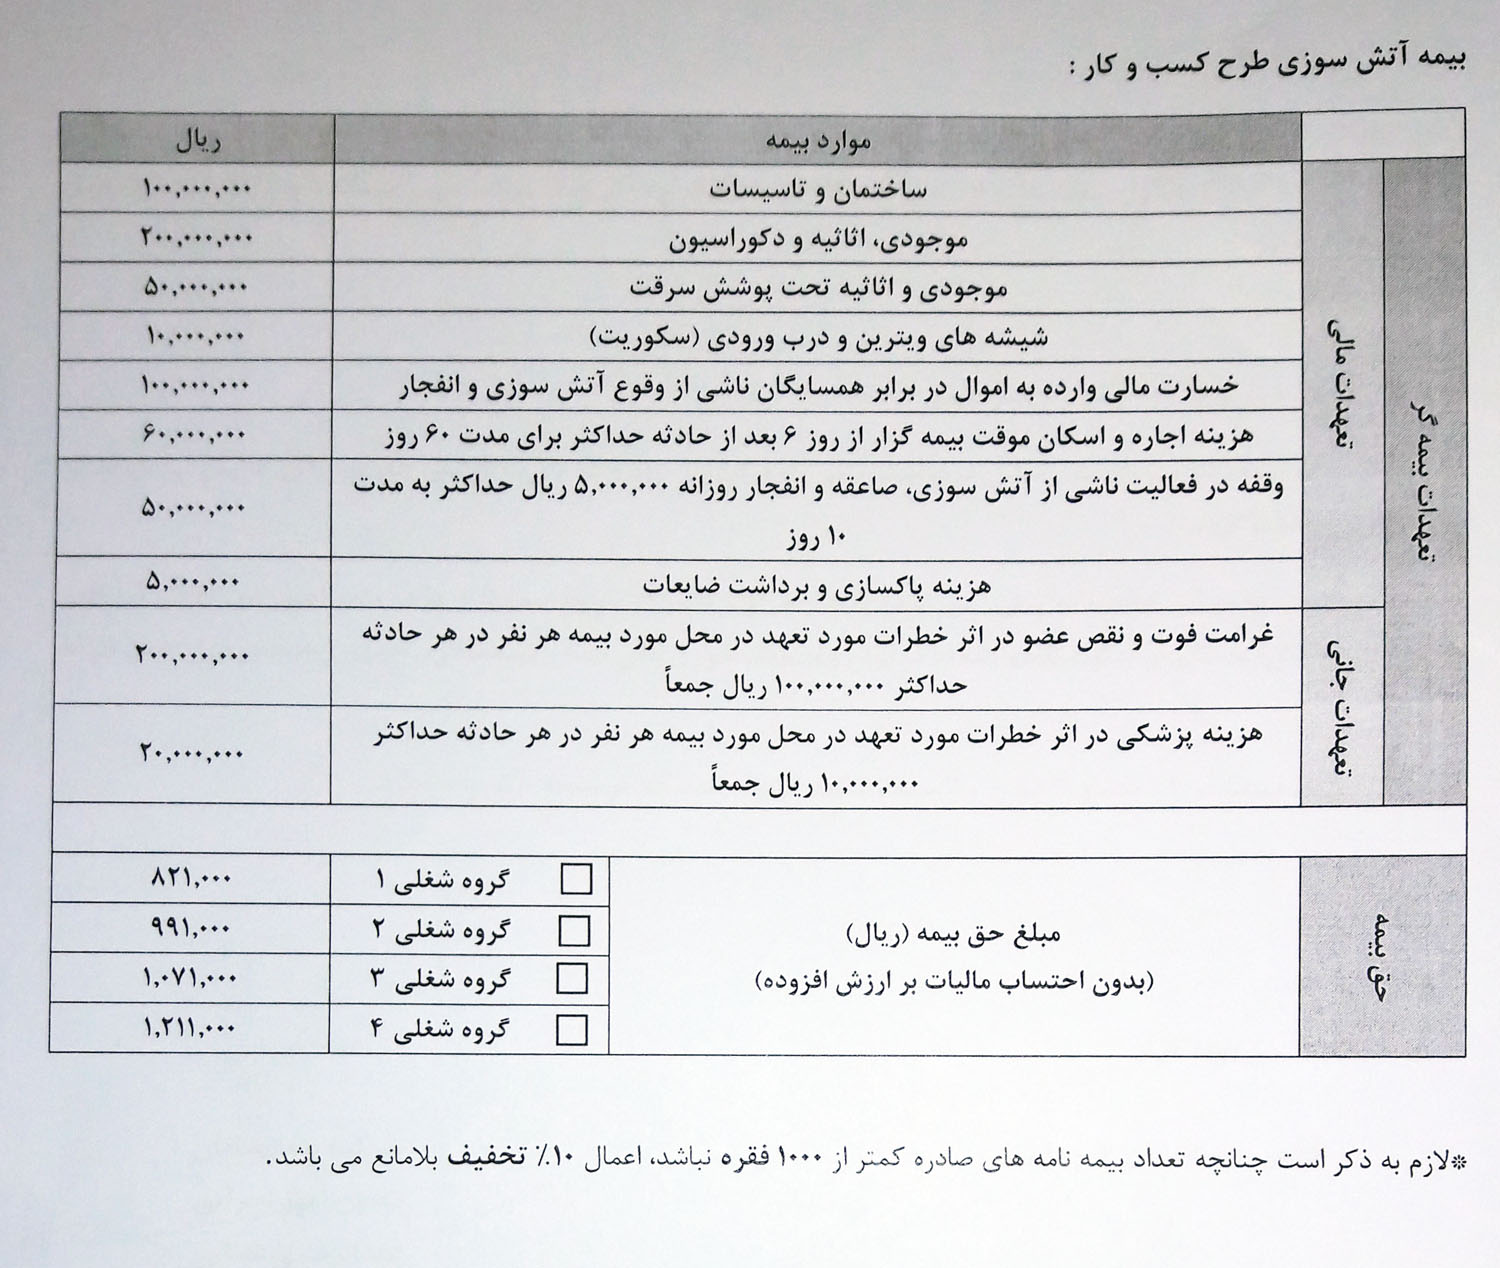 بیمه آتش سوزی طرح کسب و کار :
موارد بیمه
ریال
تعهدات بیمه گر
تعهدات مالی
ساختمان و تاسیسات
۱۰۰,۰۰۰,۰۰۰
موجودی، اثاثیه و دکوراسیون
۲۰۰,۰۰۰,۰۰۰
موجودی و اثاثیه تحت پوشش سرقت
۵۰,۰۰۰,۰۰۰
شیشه های ویترین و درب ورودی (سکوریت)
۱۰,۰۰۰,۰۰۰
خسارت مالی وارده به اموال در برابر همسایگان ناشی از وقوع آتش سوزی و انفجار
۱۰۰,۰۰۰,۰۰۰
هزینه اجاره و اسکان موقت بیمه گزار از روز ۶ بعد از حادثه حداکثر برای مدت ۶۰ روز
۶۰,۰۰۰,۰۰۰
وقفه در فعالیت ناشی از آتش سوزی، صاعقه و انفجار روزانه ۵,۰۰۰,۰۰۰ ریال حداکثر به مدت
۱۰ روز
۵۰,۰۰۰,۰۰۰
هزینه پاکسازی و برداشت ضایعات
۵,۰۰۰,۰۰۰
تعهدات جانی
غرامت فوت و نقص عضو در اثر خطرات مورد تعهد در محل مورد بیمه هر نفر در هر حادثه
حداکثر ۱۰۰,۰۰۰,۰۰۰ ریال جمعاً
۲۰۰,۰۰۰,۰۰۰
هزینه پزشکی در اثر خطرات مورد تعهد در محل مورد بیمه هر نفر در هر حادثه حداکثر
۱۰,۰۰۰,۰۰۰ ریال جمعاً
۲۰,۰۰۰,۰۰۰
حق بیمه
مبلغ حق بیمه (ریال)
(بدون احتساب مالیات بر ارزش افزوده)
گروه شغلی ۱
۸۲۱,۰۰۰
گروه شغلی ۲
۹۹۱,۰۰۰
گروه شغلی ۳
۱,۰۷۱,۰۰۰
گروه شغلی ۴
۱,۲۱۱,۰۰۰
*لازم به ذکر است چنانچه تعداد بیمه نامه های صادره کمتر از ۱۰۰۰ فقره نباشد، اعمال ۱۰٪ تخفیف بلامانع می باشد.